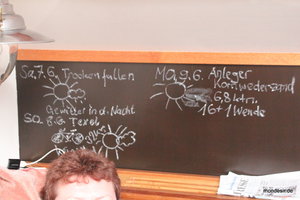 Sa 7.6. Trockenfallen
Gewitter in d. Nacht
So. Texel
Mo 9.6. Anleger
Kornwerdersand
6,8 km
16+1 Wende
mondesir.de